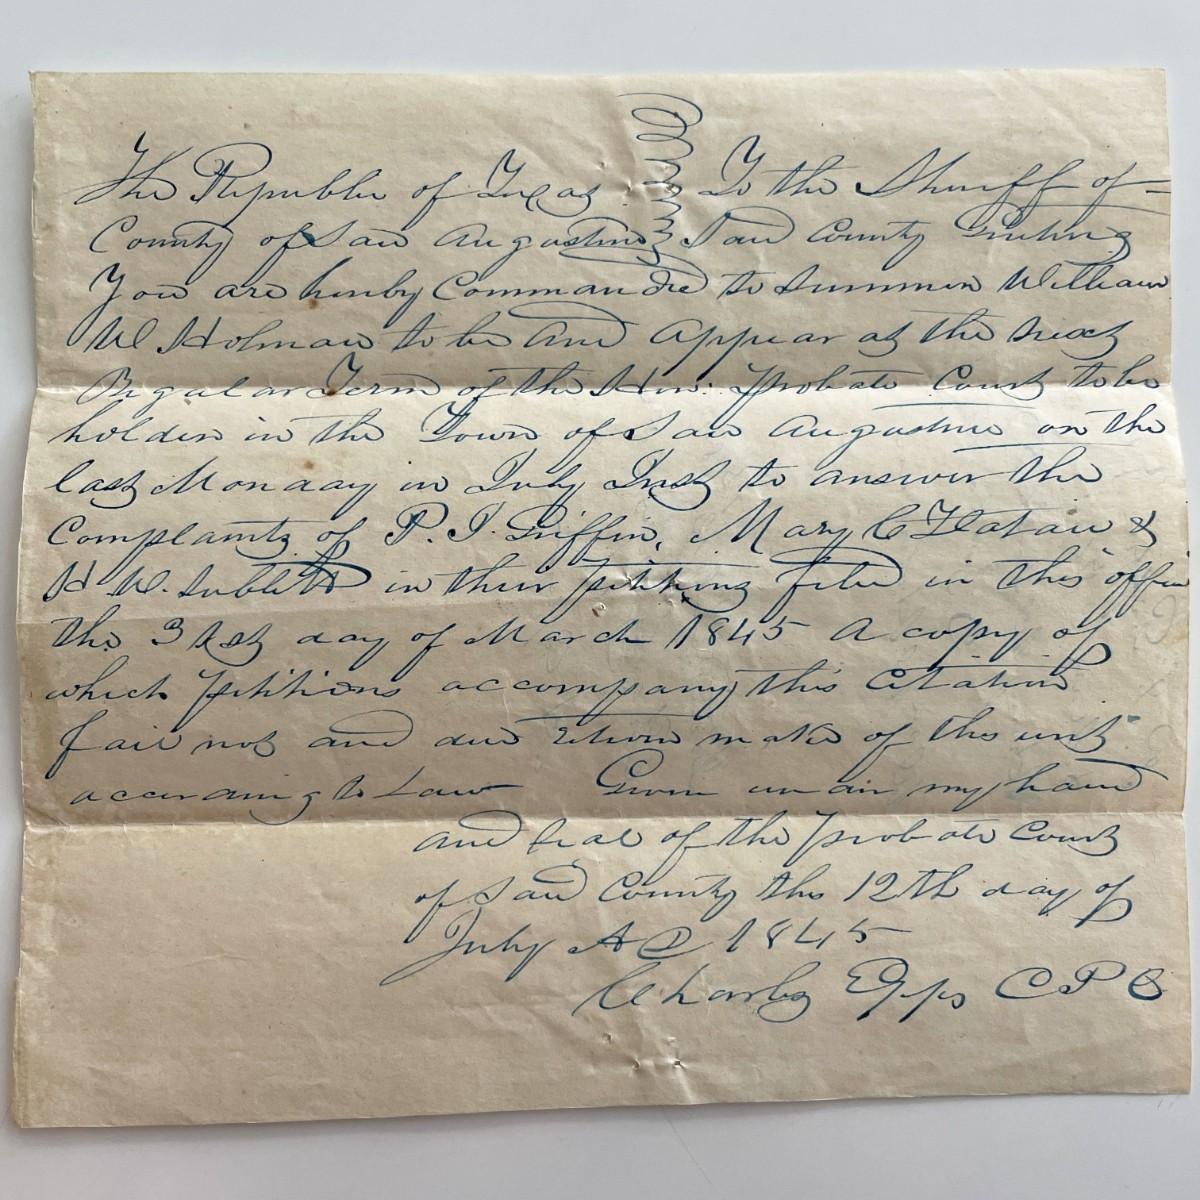 The Republic of Texas To the Sheriff of
County of San Augustine Said County Greeting
You are hereby Commanded to Summon William
W Holman to be and appear at the next
Regular Term of the Hon: Probate Court to be
holden in the Town of San Augustine on the
last Monday in July Inst to answer the
Complaints of P. I. Griffin, Mary C &
H. W. Sublett in their petitions filed in this office
the 31st day of March 1845 A copy of
which petitions accompany this Citation
fail not and due return make of this writ
according to Law Given under my hand
and Seal of the Probate Court
of Said County this 12th day of
July AD 1845
Charles Epps C P C